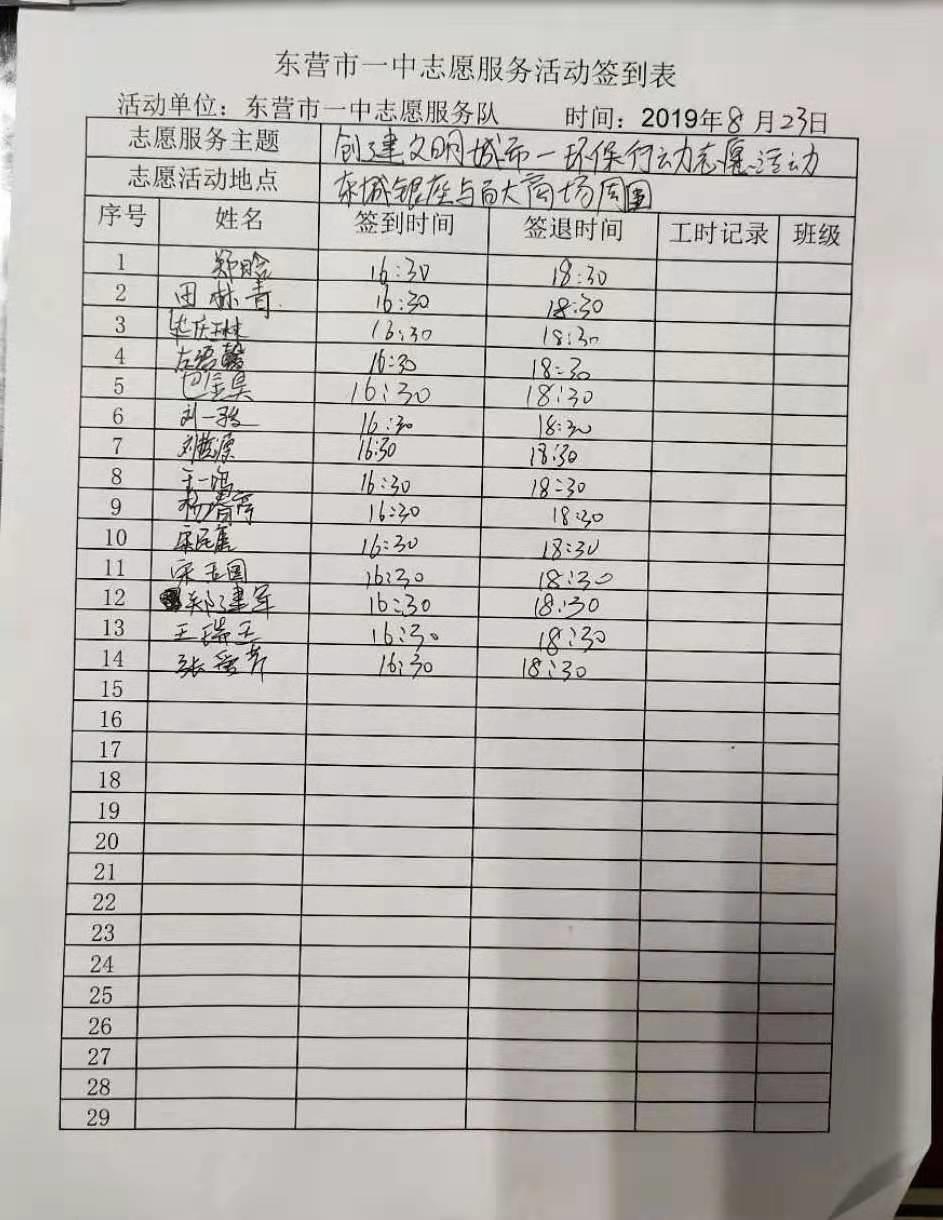 东营市一中志愿服务活动签到表
活动单位：东营市一中志愿服务队 时间：2019年8月23日
志愿服务主题 创建文明城市一环保行动志愿活动
志愿活动地点 东城银座与百大商场周围
序号 姓名 签到时间 签退时间 工时记录 班级
1 郑晗 16:30 18:30
2 田林青 16:30 18:30
3 16:30 18:30
4 16:30 18:30
5 16:30 18:30
6 刘一 16:30 18:30
7 刘 源 16:30 18:30
8 王一鸣 16:30 18:30
9 杨 16:30 18:30
10 16:30 18:30
11 宋玉国 16:30 18:30
12 郑建军 16:30 18:30
13 王瑞玉 16:30 18:30
14 张 芹 16:30 18:30
15
16
17
18
19
20
21
22
23
24
25
26
27
28
29